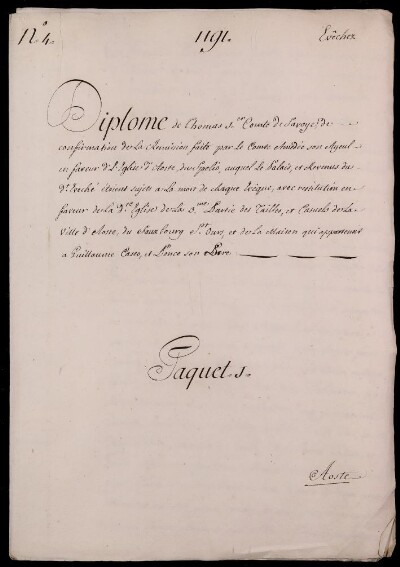 N.º 4.
1191.
Evêchez
Diplome de Thomas p.er Comte de Savoye, de
confirmation de la Remission faite par le Comte Amedée son Ayeul
en faveur de l'Eglise d'Aoste, du Spolio, auquel le Palais, et Revenus du
d.t Evêché étoient sujets a la mort de chaque Evêque, avec restitution en
faveur de la d.te Eglise de la 3.me Partie des Tailles, et Casuels de la
Ville d'Aoste, du Fauxbourg S.t Ours, et de la Maison qui appartenoit
a Guillaume Casso, et Ponce son Pere.
Paquet 1.
Aoste